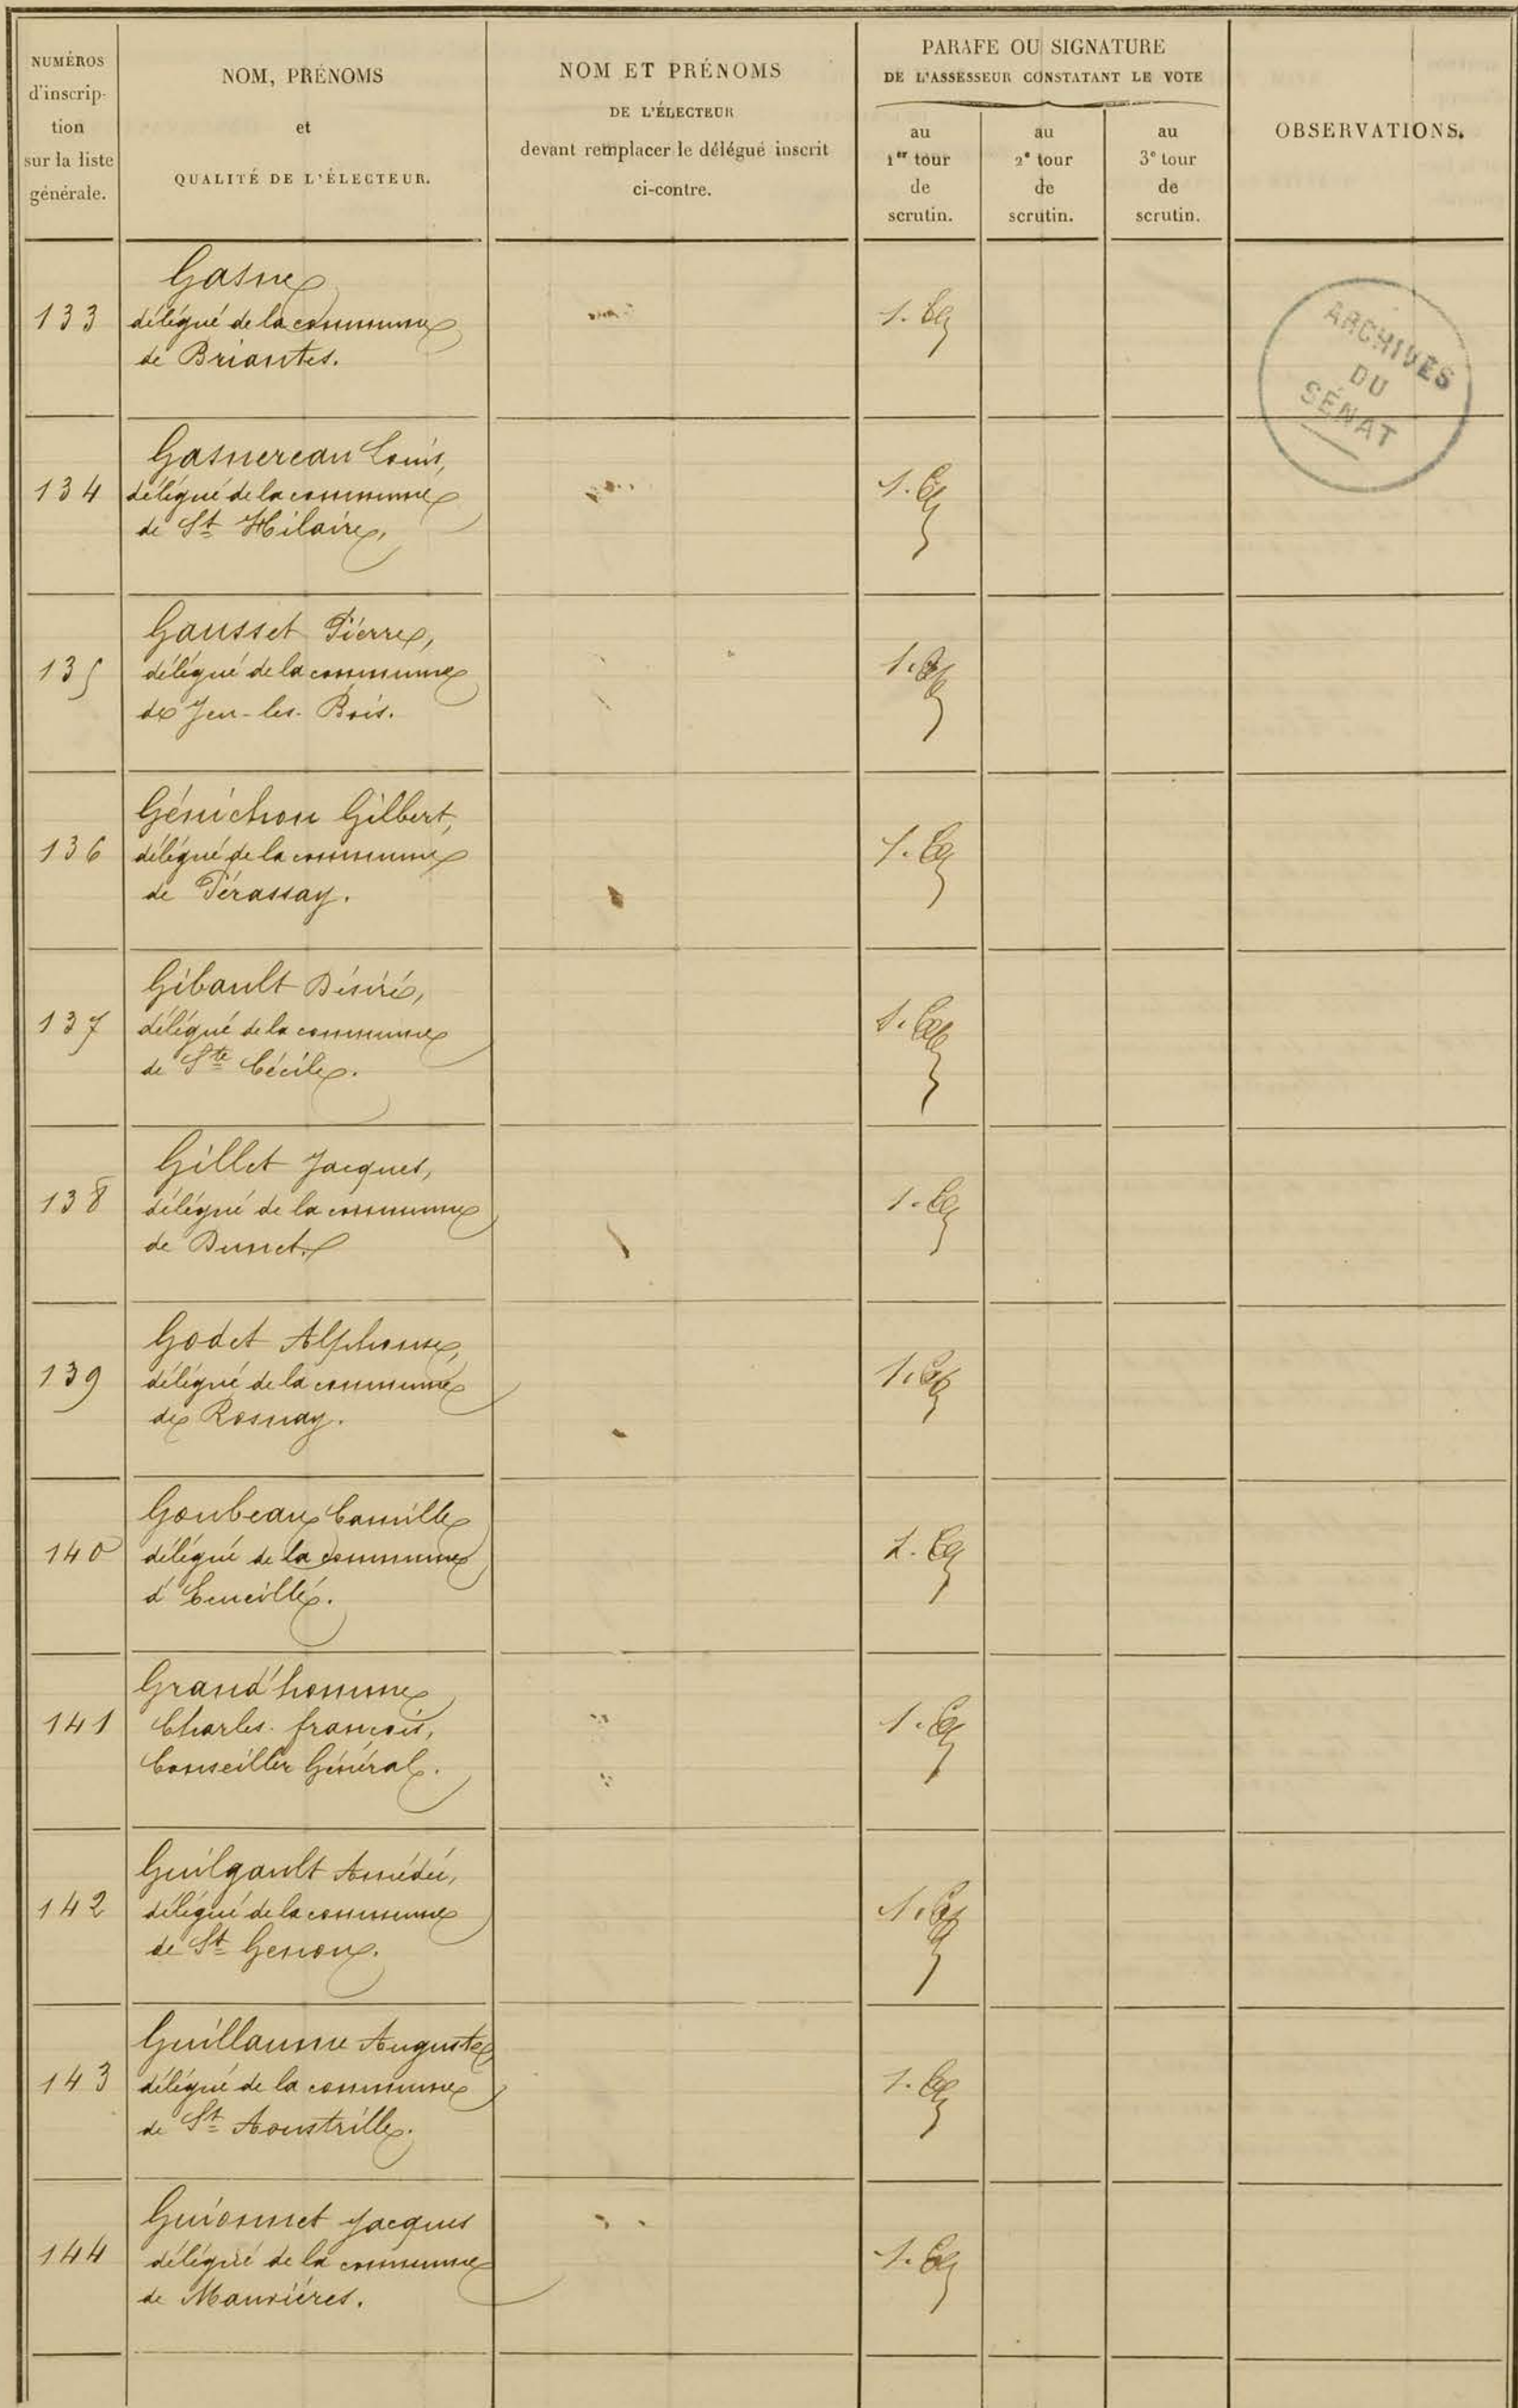 NUMÉROS
d'inscrip-
tion
sur la liste
générale.
NOM, PRÉNOMS
et
QUALITÉ DE L'ÉLECTEUR.
NOM ET PRÉNOMS
DE L'ÉLECTEUR
devant remplacer le délégué inscrit
ci-contre.
PARAFE OU SIGNATURE
DE L'ASSESSEUR CONSTATANT LE VOTE
au
1er tour
de
scrutin.
au
2e tour
de
scrutin.
au
3e tour
de
scrutin.
OBSERVATIONS.
ARCHIVES
DU
SÉNAT
Gasne
133 délégué de la commune
de Briantes.
Gasnereau Louis,
134 délégué de la commune
de St Hilaire,
Gausset Pierre,
135 délégué de la commune
de Jeu-les-Bois.
Génichon Gilbert,
136 délégué de la commune
de Pérassay.
Gibault Désiré,
137 délégué de la commune
de Ste Cécile.
Gillet Jacques,
138 délégué de la commune
de Dunet.
Godet Alphonse,
139 délégué de la commune
de Rosnay.
Goubeau Camille
140 délégué de la commune
d'Eueillé.
Grand'homme
141 Charles-françois,
Conseiller Général.
Guilgault Amédée,
142 délégué de la commune
de St Genou.
Guillaume Auguste
143 délégué de la commune
de St Aoustrille.
Guionnet Jacques
144 délégué de la commune
de Mauvières.